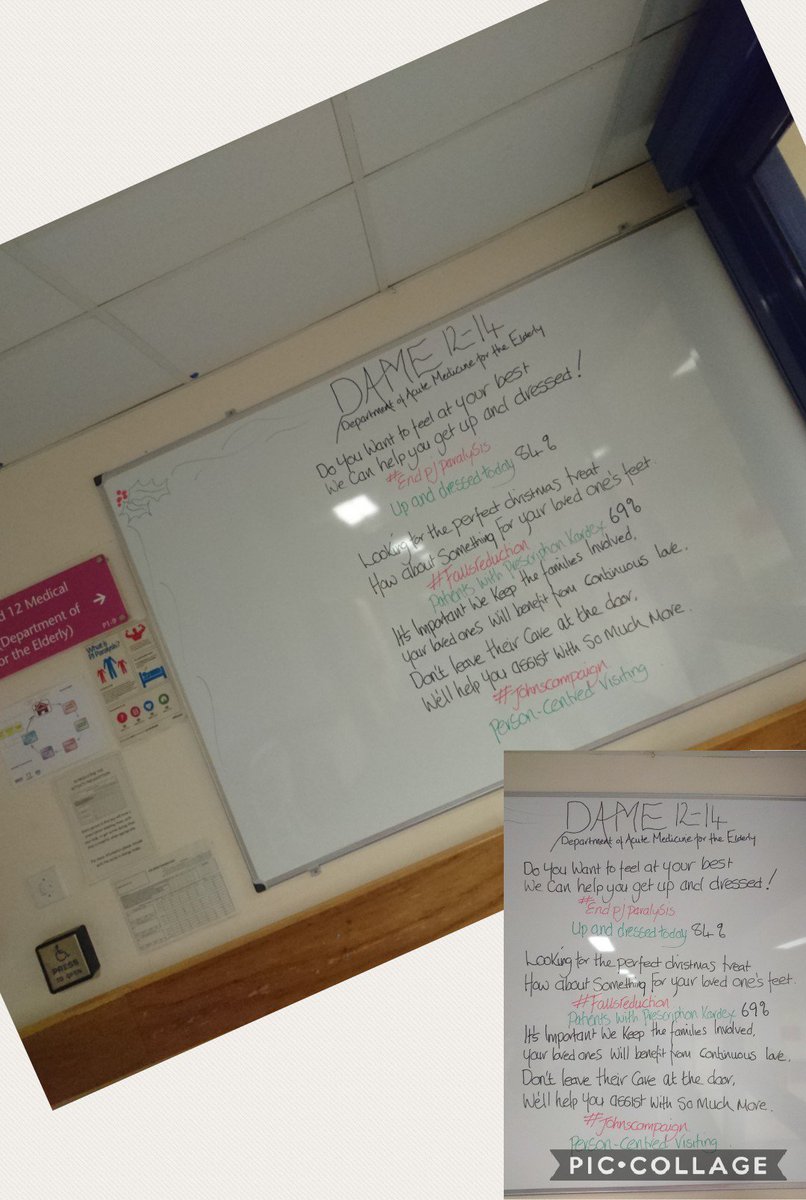 DAME 12-14
Department of Acute Medicine for the Elderly
Do you Want to feel at your best
We Can help you get up and dressed!
#End pj paralysis
Up and dressed today 84%
Looking for the perfect christmas treat
How about Something For your loved one's feet.
#Fallsreduction
Patients with Prescription Kardex 69%
It's Important We Keep the families Involved,
your loved ones will benefit from Continuous love.
Don't leave their Care at the door,
We'll help you assist with So Much More.
#Johnscampaign
Person-Centred Visiting
d 12 Medical
(Department of
or the Elderly)
What is
PJ Paralysis?
PRESS
TO OPEN
DAME 12-14
Department of Acute Medicine for the Elderly
Do you Want to feel at your best
We Can help you get up and dressed!
#End pj paralysis
Up and dressed today 84%
Looking for the perfect christmas treat
How about Something For your loved one's feet.
#Fallsreduction
Patients with Prescription Kardex 69%
It's Important We Keep the families Involved,
your loved ones will benefit from Continuous love.
Don't leave their Care at the door,
We'll help you assist with So Much More.
#Johnscampaign
Person-Centred Visiting
PIC•COLLAGE